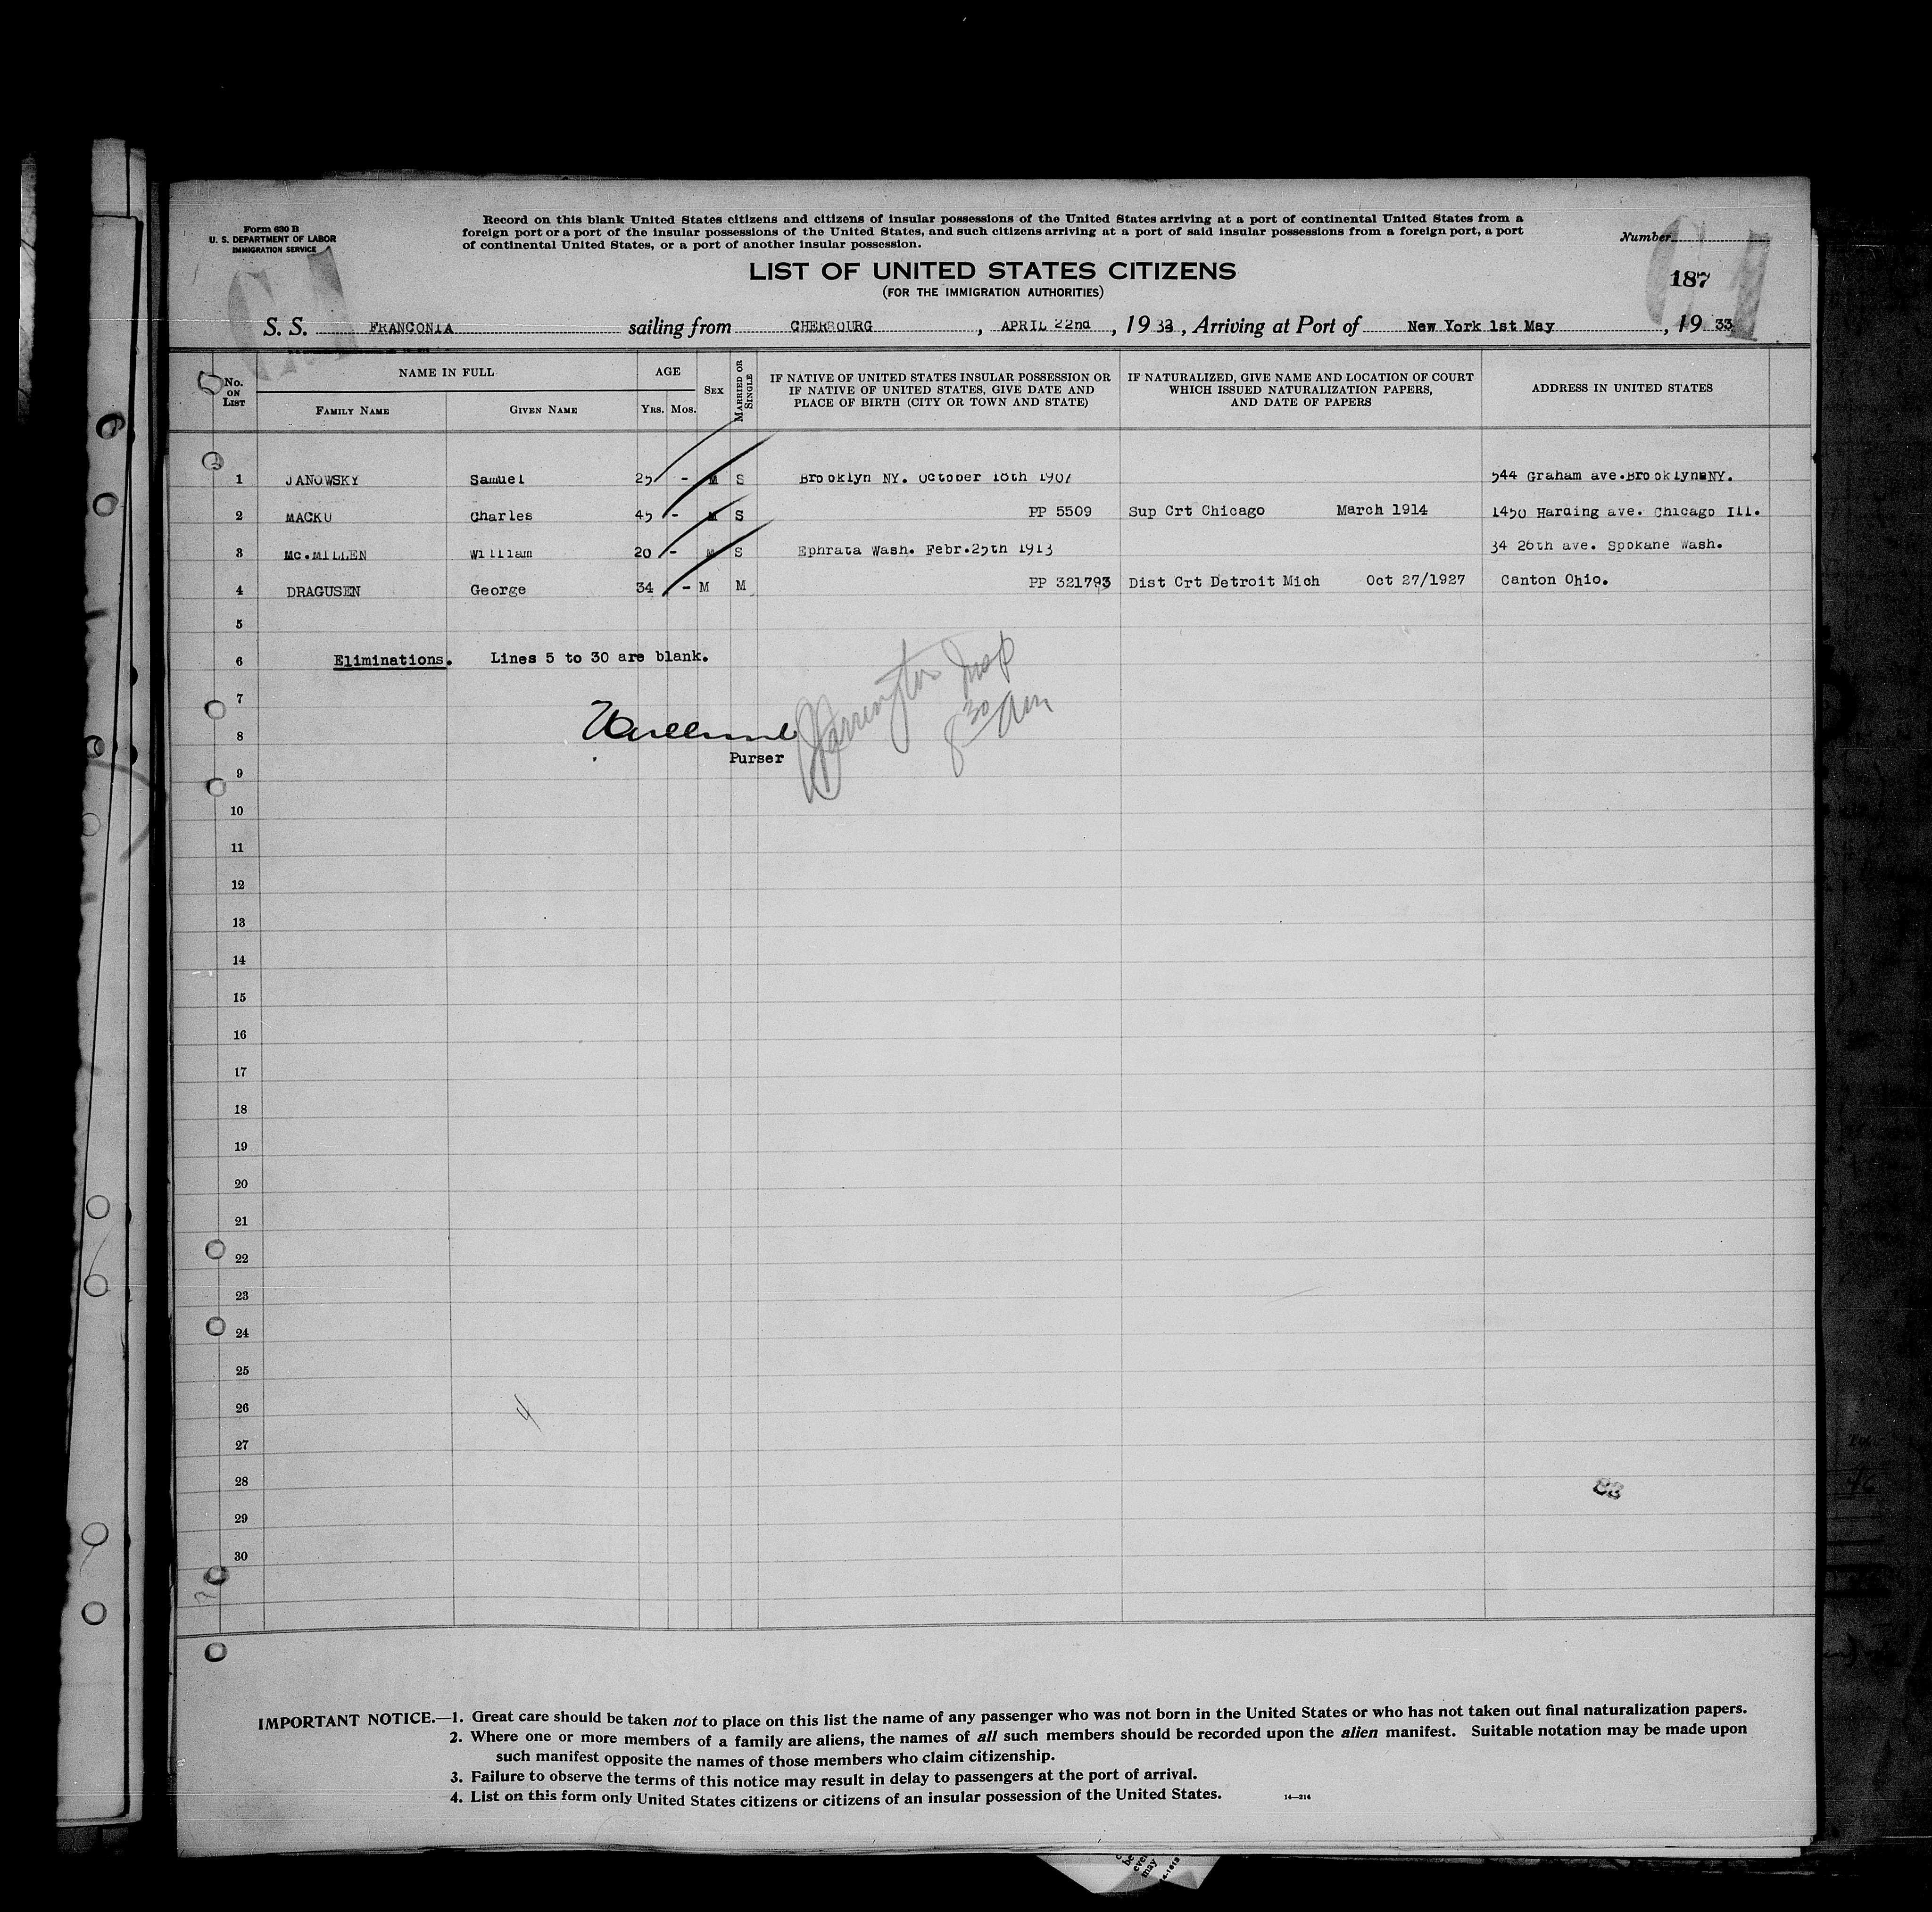 Form 630 B
U. S. DEPARTMENT OF LABOR
IMMIGRATION SERVICE
Record on this blank United States citizens and citizens of insular possessions of the United States arriving at a port of continental United States from a
foreign port or a port of the insular possessions of the United States, and such citizens arriving at a port of said insular possessions from a foreign port, a port
of continental United States, or a port of another insular possession.
Number
LIST OF UNITED STATES CITIZENS
(FOR THE IMMIGRATION AUTHORITIES)
187
S. S. FRANCONIA sailing from CHERBOURG, APRIL 22nd, 1933, Arriving at Port of New York 1st May, 19 33
No. ON LIST
NAME IN FULL
FAMILY NAME GIVEN NAME
AGE
YRS. MOS.
SEX
MARRIED OR SINGLE
IF NATIVE OF UNITED STATES INSULAR POSSESSION OR
IF NATIVE OF UNITED STATES, GIVE DATE AND
PLACE OF BIRTH (CITY OR TOWN AND STATE)
IF NATURALIZED, GIVE NAME AND LOCATION OF COURT
WHICH ISSUED NATURALIZATION PAPERS,
AND DATE OF PAPERS
ADDRESS IN UNITED STATES
1 JANOWSKY Samuel 25 - M S Brooklyn NY. October 18th 1907 544 Graham ave.Brooklyn NY.
2 MACKU Charles 45 - M S PP 5509 Sup Crt Chicago March 1914 1450 Harding ave. Chicago Ill.
3 Mc.MILLEN William 20 - M S Ephrata Wash. Febr.25th 1913 34 26th ave. Spokane Wash.
4 DRAGUSEN George 34 - M M PP 321793 Dist Crt Detroit Mich Oct 27/1927 Canton Ohio.
5
6 Eliminations. Lines 5 to 30 are blank.
7
8
Purser
Insp
8 30 Am
9
10
11
12
13
14
15
16
17
18
19
20
21
22
23
24
25
26
27
28
29
30
IMPORTANT NOTICE.—1. Great care should be taken not to place on this list the name of any passenger who was not born in the United States or who has not taken out final naturalization papers.
2. Where one or more members of a family are aliens, the names of all such members should be recorded upon the alien manifest. Suitable notation may be made upon
such manifest opposite the names of those members who claim citizenship.
3. Failure to observe the terms of this notice may result in delay to passengers at the port of arrival.
4. List on this form only United States citizens or citizens of an insular possession of the United States.
14—214